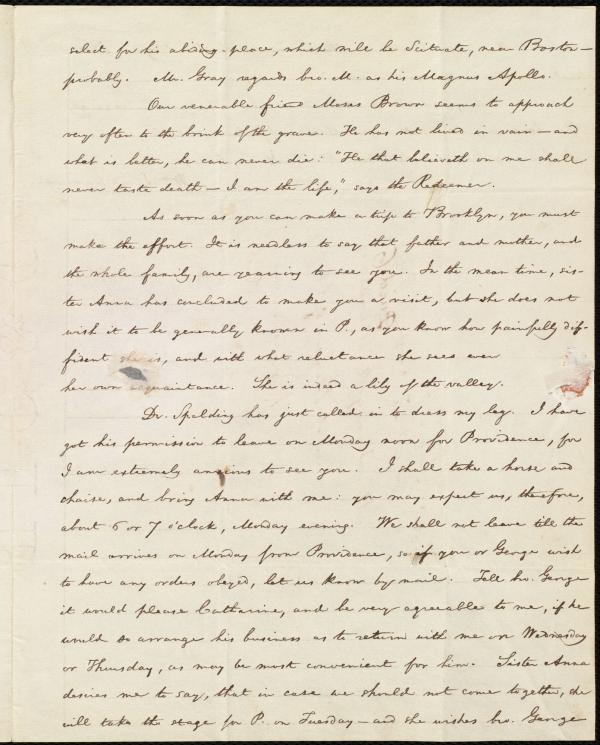 select for his abiding-place, which will be Scituate, near Boston—
probably. Mr. Gray regards bro. M. as his Magnus Apollo.
Our venerable friend Moses Brown seems to approach
very often to the brink of the grave. He has not lived in vain—and
what is better, he can never die: "He that believeth on me shall
never taste death—I am the life," says the Redeemer.
As soon as you can make a trip to Brooklyn, you must
make the effort. It is needless to say that father and mother, and
the whole family, are yearning to see you. In the mean time, sis-
ter Anna has concluded to make you a visit, but she does not
wish it to be generally known in P., as you know how painfully dif-
fident she is, and with what reluctance she sees ever
her own acquaintance. She is indeed a lily of the valley.
Dr. Spalding has just called in to dress my leg. I have
got his permission to leave on Monday noon for Providence, for
I am extremely anxious to see you. I shall take a horse and
chaise, and bring Anna with me: you may expect us, therefore,
about 6 or 7 o'clock, Monday evening. We shall not leave till the
mail arrives on Monday from Providence, so if you or George wish
to have any orders obeyed, let us know by mail. Tell bro. George
it would please Catharine, and be very agreeable to me, if he
would so arrange his business as to return with me on Wednesday
or Thursday, as may be most convenient for him. Sister Anna
desires me to say, that in case we should not come together, she
will take the stage for P. on Tuesday—and she wishes bro. George